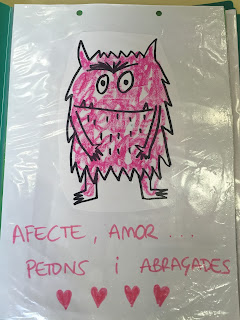 AFECTE, AMOR ...
PETONS i ABRAÇADES